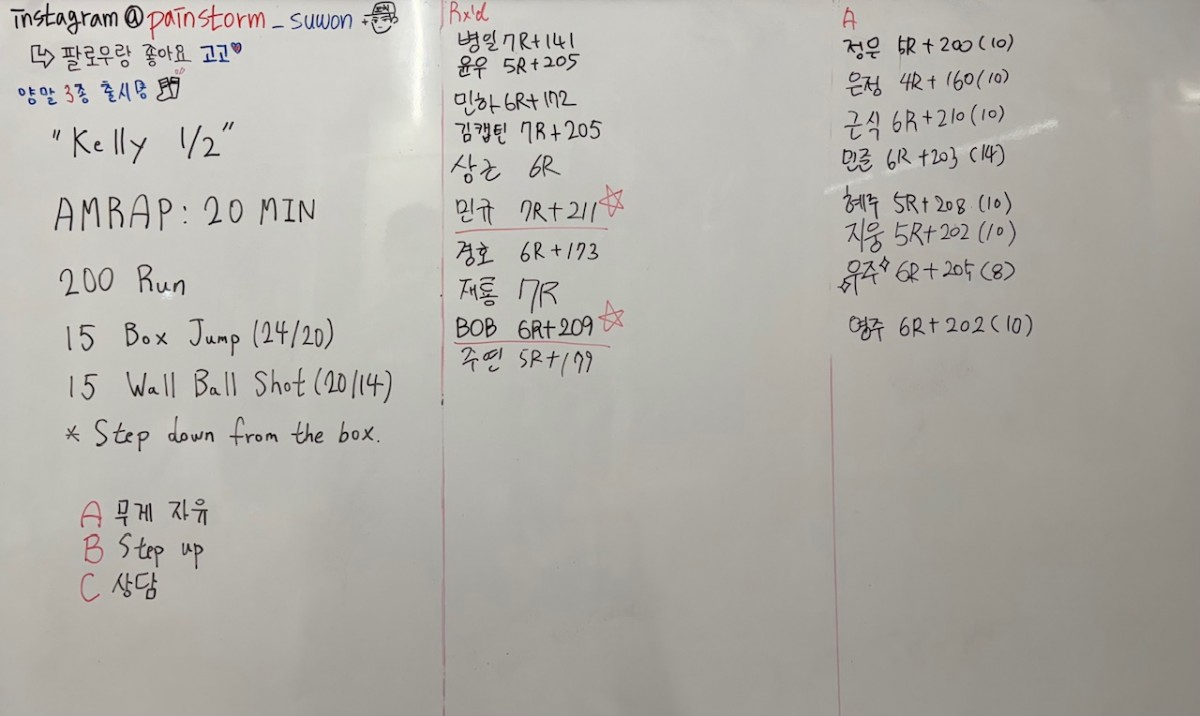 instagram @ painstorm _ suwon +
↳ 팔로우랑 좋아요 고고♥
양말 3종 출시중
"Kelly 1/2"
AMRAP: 20 MIN
200 Run
15 Box Jump (24/20)
15 Wall Ball Shot (20/14)
* Step down from the box.
A 무게 자유
B Step up
C 상담
Rx'd
병일 7R+141
윤우 5R+205
민하 6R+172
김캡틴 7R+205
상근 6R
민규 7R+211 ☆
경호 6R+173
재룡 7R
BOB 6R+209 ☆
주연 5R+179
A
정은 5R+200 (10)
은정 4R+160 (10)
근식 6R+210 (10)
민준 6R+203 (14)
혜주 5R+208 (10)
지웅 5R+202 (10)
우주 6R+205 (8)
영주 6R+202 (10)